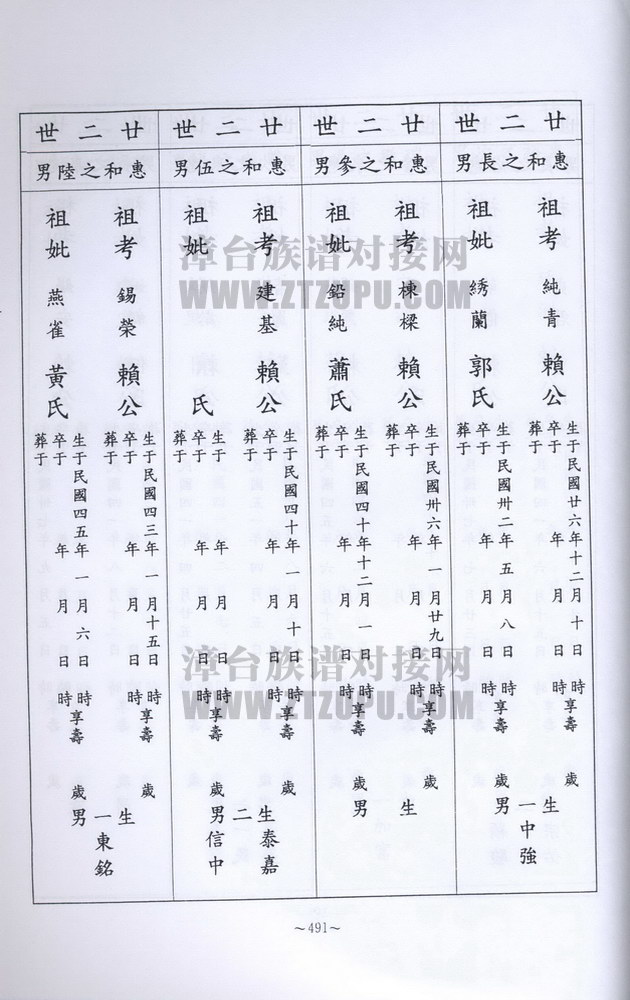 廿二世
惠和之長男
祖考 純青 賴公
生于民國廿六年十二月十日時享壽 歲
卒于 年 月 日時
葬于
祖妣 綉蘭 郭氏
生于民國卅二年五月八日時享壽 歲
卒于 年 月 日時
葬于
生一男
中強
廿二世
惠和之參男
祖考 棟樑 賴公
生于民國卅六年一月廿九日時享壽 歲
卒于 年 月 日時
葬于
祖妣 鉛純 蕭氏
生于民國四十年十二月一日時享壽 歲
卒于 年 月 日時
葬于
生 男
廿二世
惠和之伍男
祖考 建基 賴公
生于民國四十年一月十日時享壽 歲
卒于 年 月 日時
葬于
祖妣 氏
生于 年 月 日時享壽 歲
卒于 年 月 日時
葬于
生二男
泰嘉
信中
廿二世
惠和之陸男
祖考 錫榮 賴公
生于民國四三年一月十五日時享壽 歲
卒于 年 月 日時
葬于
祖妣 燕雀 黃氏
生于民國四五年一月六日時享壽 歲
卒于 年 月 日時
葬于
生一男
東銘
~491~
漳台族谱对接网
WWW.ZTZUPU.COM
漳台族谱对接网
WWW.ZTZUPU.COM